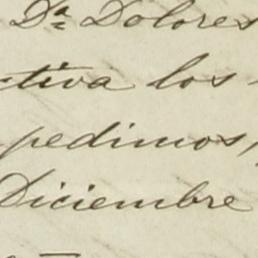 Dª Dolores
tiva los
pedimos,
Diciembre